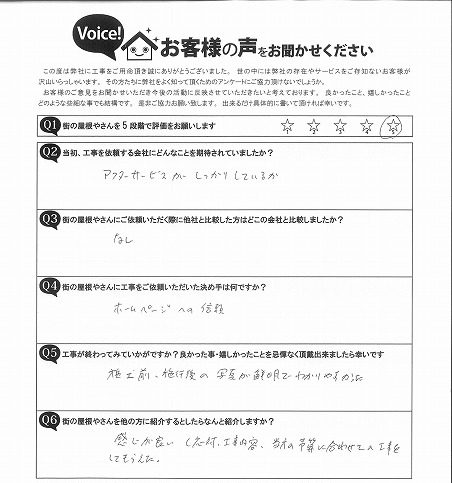 Voice!
お客様の声をお聞かせください
この度は弊社に工事をご用命頂き誠にありがとうございました。 世の中には弊社の存在やサービスをご存知ないお客様が
沢山いらっしゃいます。 その方たちに弊社をよく知って頂くためのアンケートにご協力頂けないでしょうか。
お客様のご意見をお聞かせいただき今後の活動に反映させていただきたいと考えております。 良かったこと、嬉しかったこと
どのような些細な事でも結構です。 是非ご協力お願い致します。 出来るだけ具体的に書いて頂ければ幸いです。
Q1 街の屋根やさんを5段階で評価をお願いします ☆1 ☆2 ☆3 ☆4 ☆5
Q2 当初、工事を依頼する会社にどんなことを期待されていましたか?
アフターサービスがしっかりしているか
Q3 街の屋根やさんにご依頼いただく際に他社と比較した方はどこの会社と比較しましたか?
なし
Q4 街の屋根やさんに工事をご依頼いただいた決め手は何ですか?
ホームページへの信頼
Q5 工事が終わってみていかがですか?良かった事・嬉しかったことを忌憚なく頂戴出来ましたら幸いです
施工前、施行後の写真が鮮明でわかりやすかった
Q6 街の屋根やさんを他の方に紹介するとしたらなんと紹介しますか?
感じが良い(応対、工事内容、当方の予算に合わせての工事を
してもらえた。